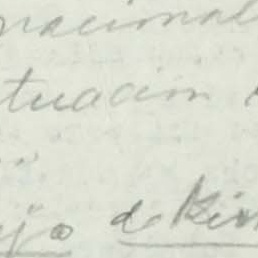 nacional
tuación
ejo de Kir